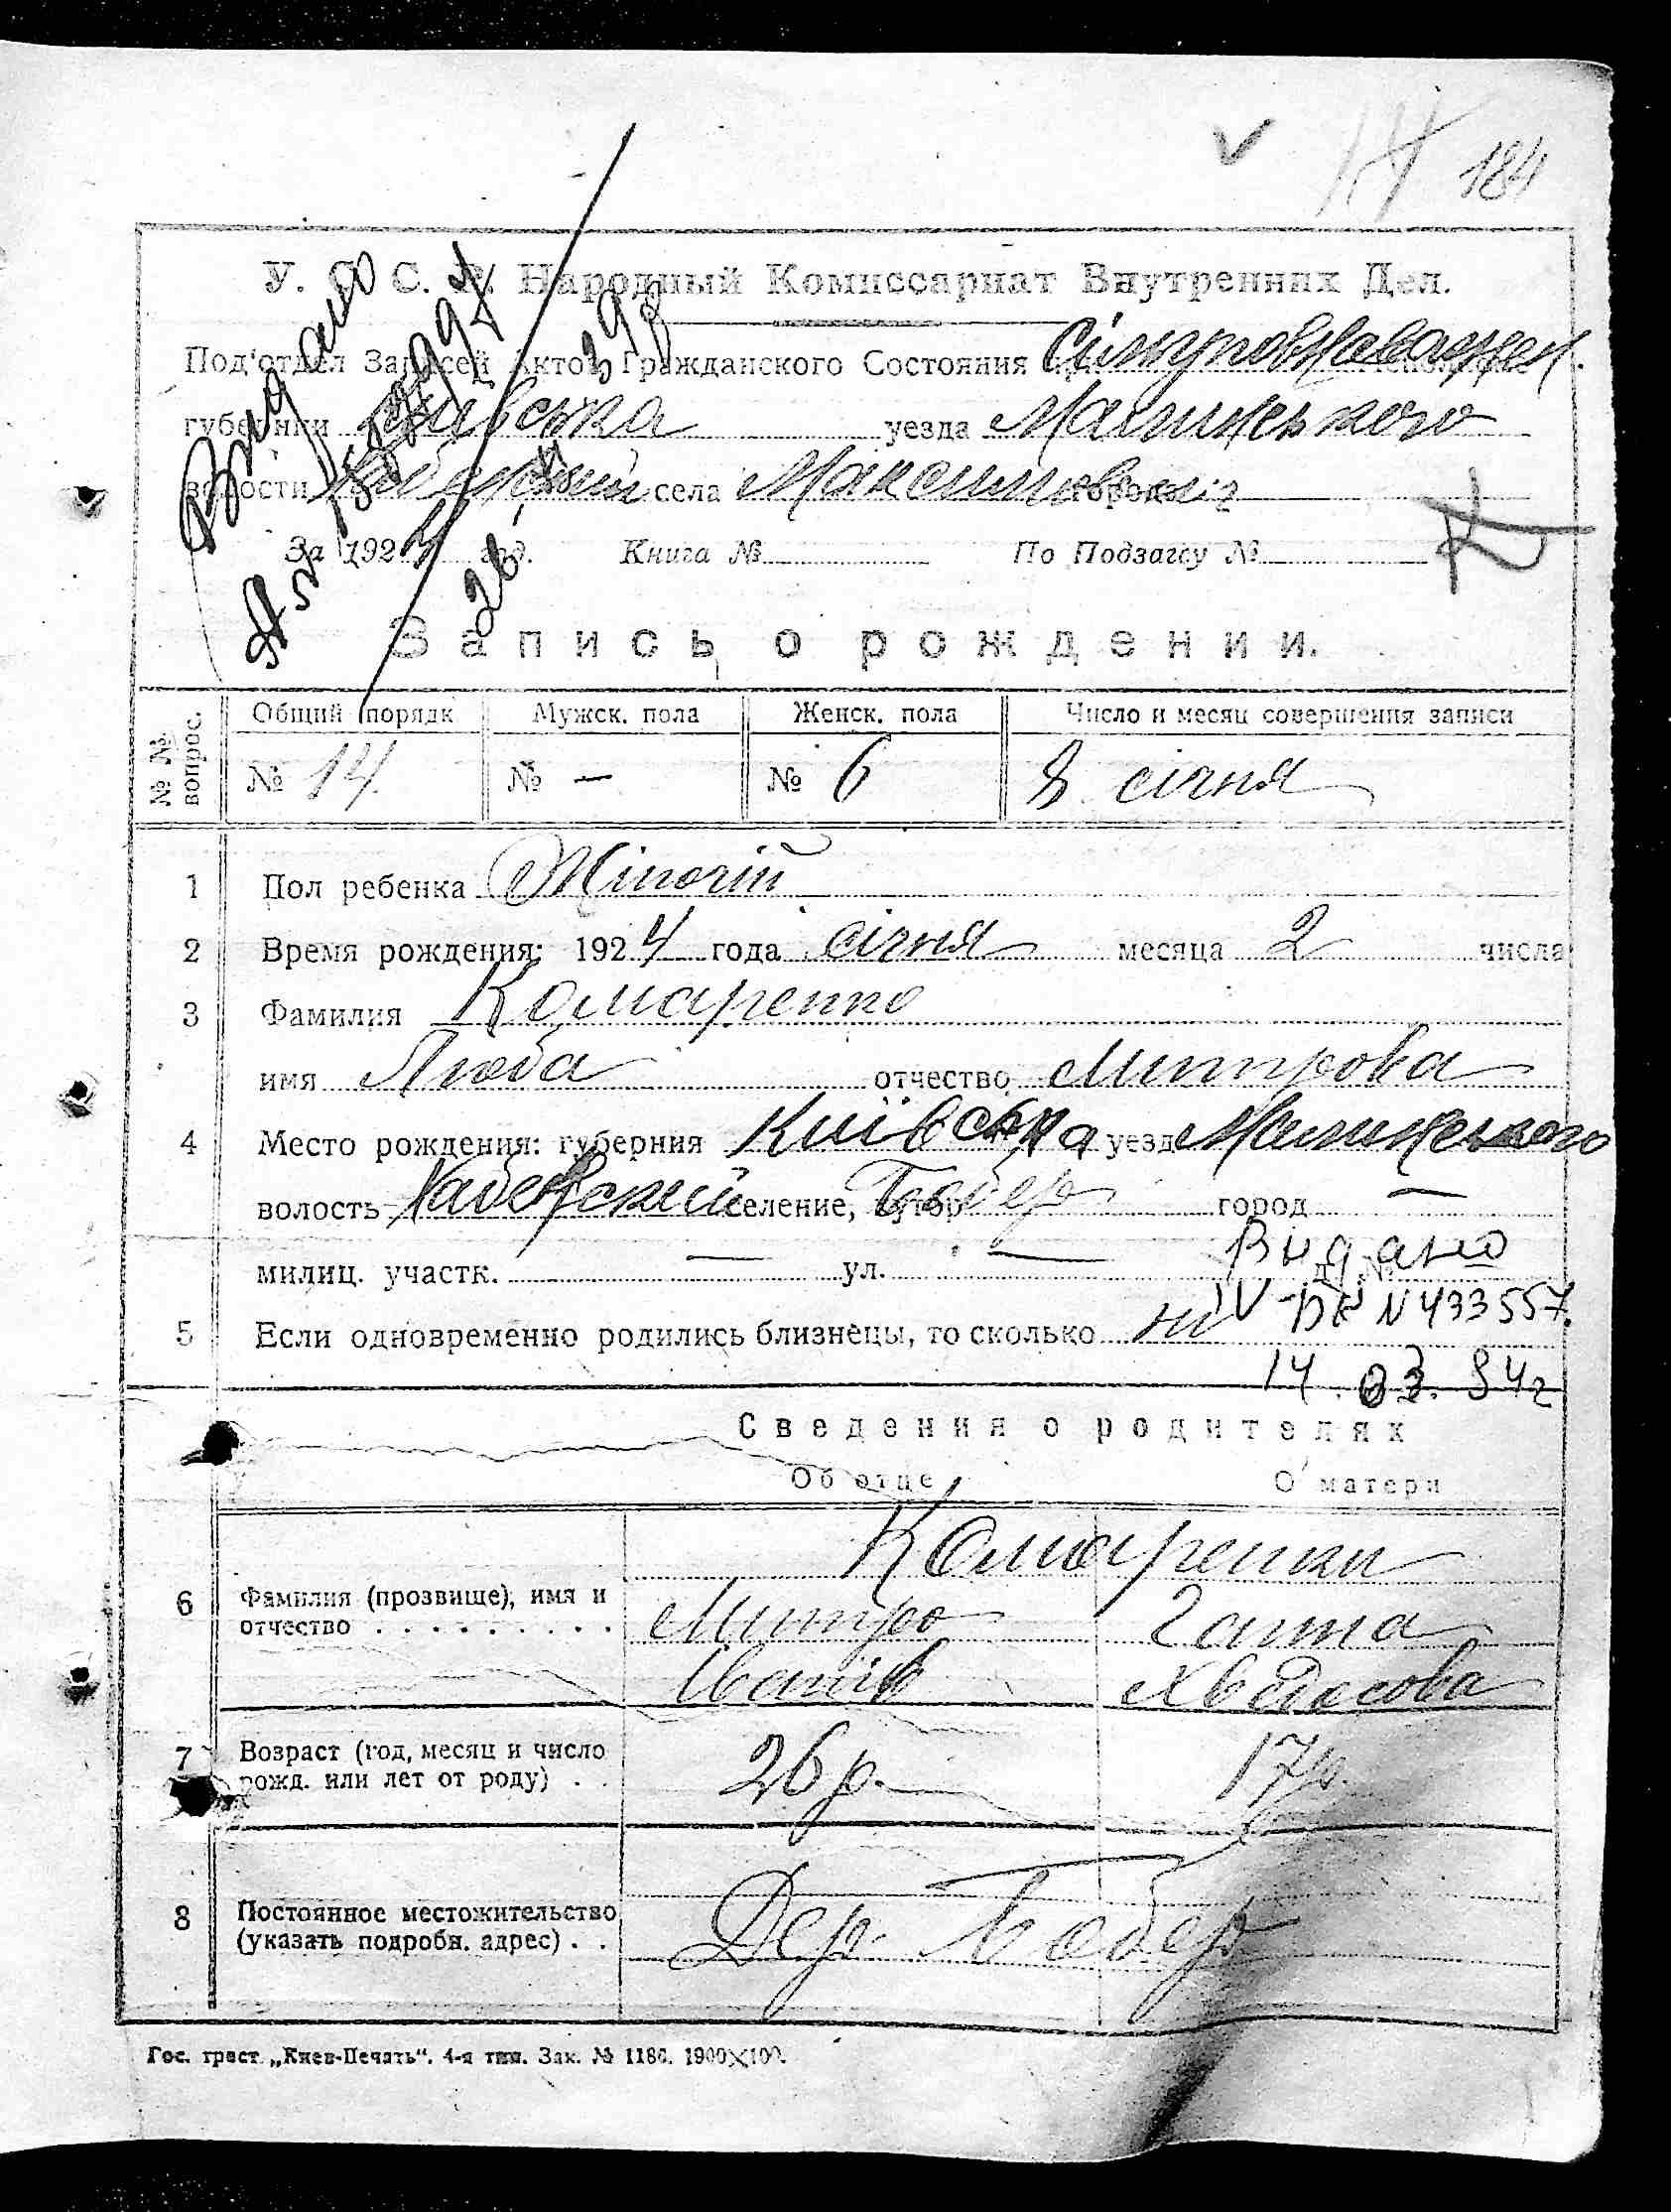 184
У. С. С. Р. Народный Комиссариат Внутренних Дел.
Под'отдел Записей Актов Гражданского Состояния при
губернии Київська уезда Малинського
волости села Максимович города
За 1924 год. Книга № По Подзагсу №
Видано
Запись о рождении.
№ № вопрос. Общий порядк Мужск. пола Женск. пола Число и месяц совершения записи
№ 14. № — № 6 8 січня
1 Пол ребенка Жіночій
2 Время рождения: 1924 года січня месяца 2 числа
3 Фамилия Комаренко
имя Люба отчество Митрова
4 Место рождения: губерния Київська уезд Малинського
волость Хабенский селение, хутор Бобер город —
милиц. участк. — ул. — д. №
Видано
5 Если одновременно родились близнецы, то сколько ні
N 433557.
14.03.84г
Сведения о родителях
Об отце О матери
Комаренки
6 Фамилия (прозвище), имя и отчество . . . . . . . . . Митро Ганна
Іванів Хведосова
7 Возраст (год, месяц и число рожд. или лет от роду) . . 26 р. 17 р.
8 Постоянное местожительство (указать подробн. адрес) . . Дер. Бобер
Гос. трест „Киев-Печать“. 4-я тип. Зак. № 1186. 1900×100.